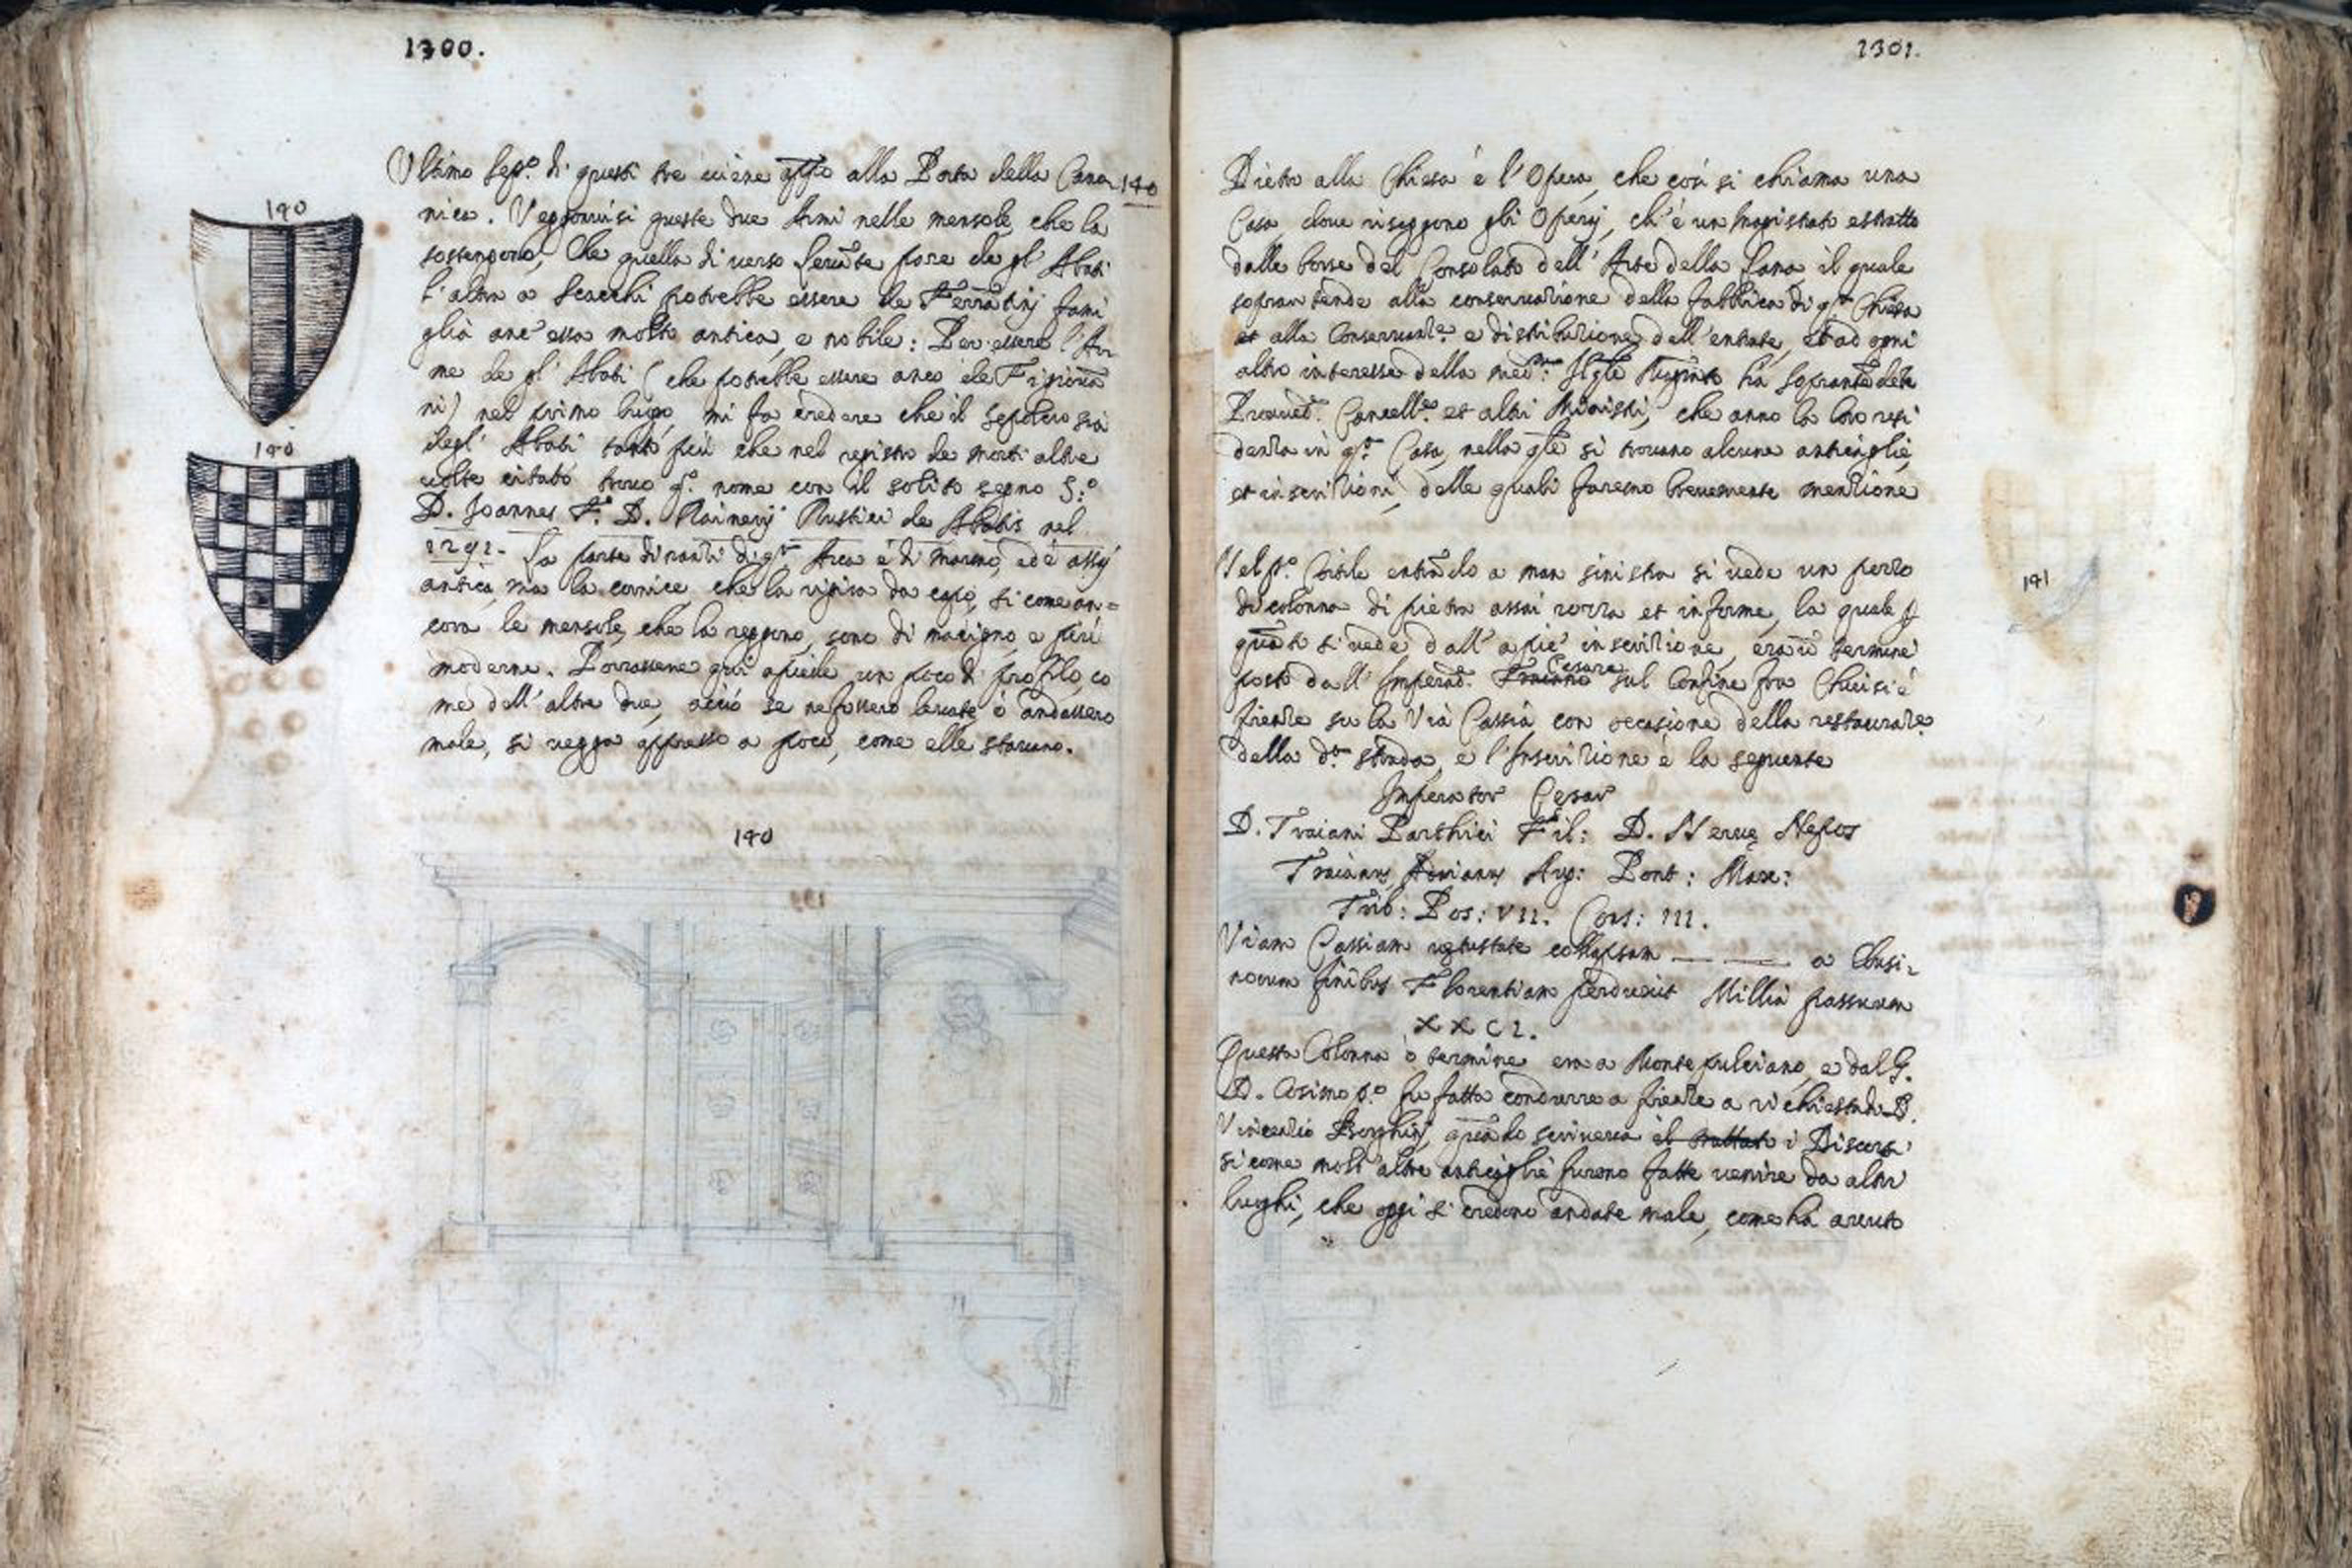 1300.
Ultimo Sep.º di questi tre viene app.º alla Porta della Cano
140
nica. Veggonvisi queste due Armi nelle mensole, che la
sostengono, Che quella di verso pare de gl' Abati
l'altra a Scacchi potrebbe essere de Ferrantinj fami
glia anc' essa molto antica, e nobile: Per essere l'Ar
me de gl' Abati (che potrebbe essere anco de Figiova
ni) nel primo luogo, mi fa credere che il sepolcro sia
degl' Abati tanto più che nel registro de morti altre
volte citato trovo q.º nome con il solito segno S:º
D. Joannes F.º D. Rainerij Rustici de Abatis nel
1291. La parte dinanzi di q.ta Arca è di marmo, ed è assj
antica, ma la cornice, che la rigira da capo, si come an=
cora le mensole, che la reggono, sono di macigno, e più
moderne. Porrassene qui apiede un poco di profilo, co
me dell' altre due, acciò se ne fussero levate, ò andassero
male, si vegga appresso a poco, come elle stavano.
140
140
140
139
1301.
Dietro alla Chiesa è l'Opera, che così si chiama una
Casa dove riseggono gli Operij, ch' è un Magistrato estratto
dalle borse del Consolato dell' Arte della Lana il quale
soprantende alla conservazione della fabbrica di q.ta Chiesa
et alla Conservaz.e e distribuzione dell' entrate, et ad ogni
altro interesse della med.ma Il qle Magistrato ha Soprantendete
Provved.e Cancell.e et altri Ministri, che anno la loro resi
denza in q.ta Casa, nella qle si trovano alcune anticaglie,
et inscrizioni, delle quali faremo brevemente menzione
Nel p.º Cortile entrado a man sinistra si vede un pezzo
141
di colonna di pietra assai rozza et informe, la quale p
quato si vede dall' a piè inscrizione, era ũ termine
posto dall' Imperad.e Traiano Cesare sul Confine fra Chiusi è
firenze su la Via Cassia con occasione della restauraz.e
della d.ta strada, e l'Inscrizione è la seguente
Imperator Cęsar
D. Traiani Parthici Fil: D. Nervę Nepos
Traianus Adrianus Aug: Pont: Max:
Trib: Pos: VII. Cons: III.
Viam Cassiam vetustate collapsam — — a Clusi=
norum finibus Florentiam perduxit Millia passuum
XXCI.
Questa Colonna ò termine era a Monte pulciano, e dal G.
D. Cosimo p.º fu fatta condurre a firenze a richiesta di D.
Vincenzio Borghinj, quado scriveva il trattato i Discorsi
si come molt' altre anticaglie furono fatte venire da altri
luoghi, che oggi si credono andate male, come ha avuto